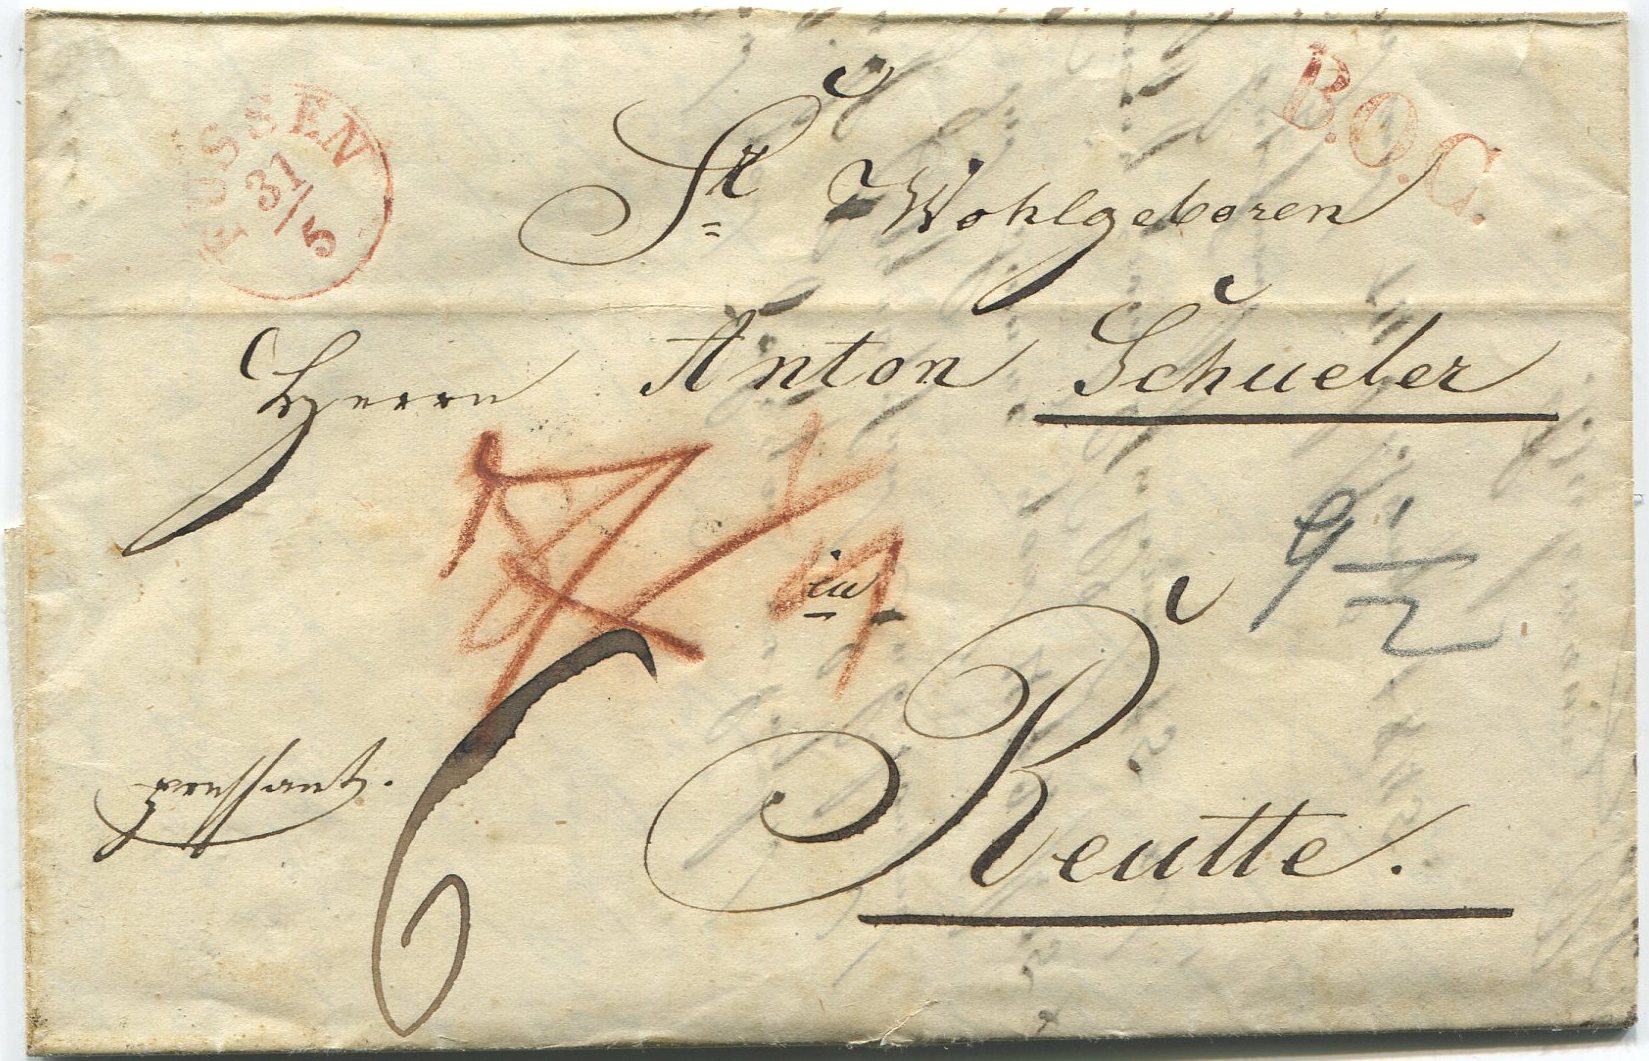 FUSSEN
31/5
B.O.C.
Sr Wohlgeboren
Herrn Anton Schueler
in
9 1/2
Reutte.
pressant.
6